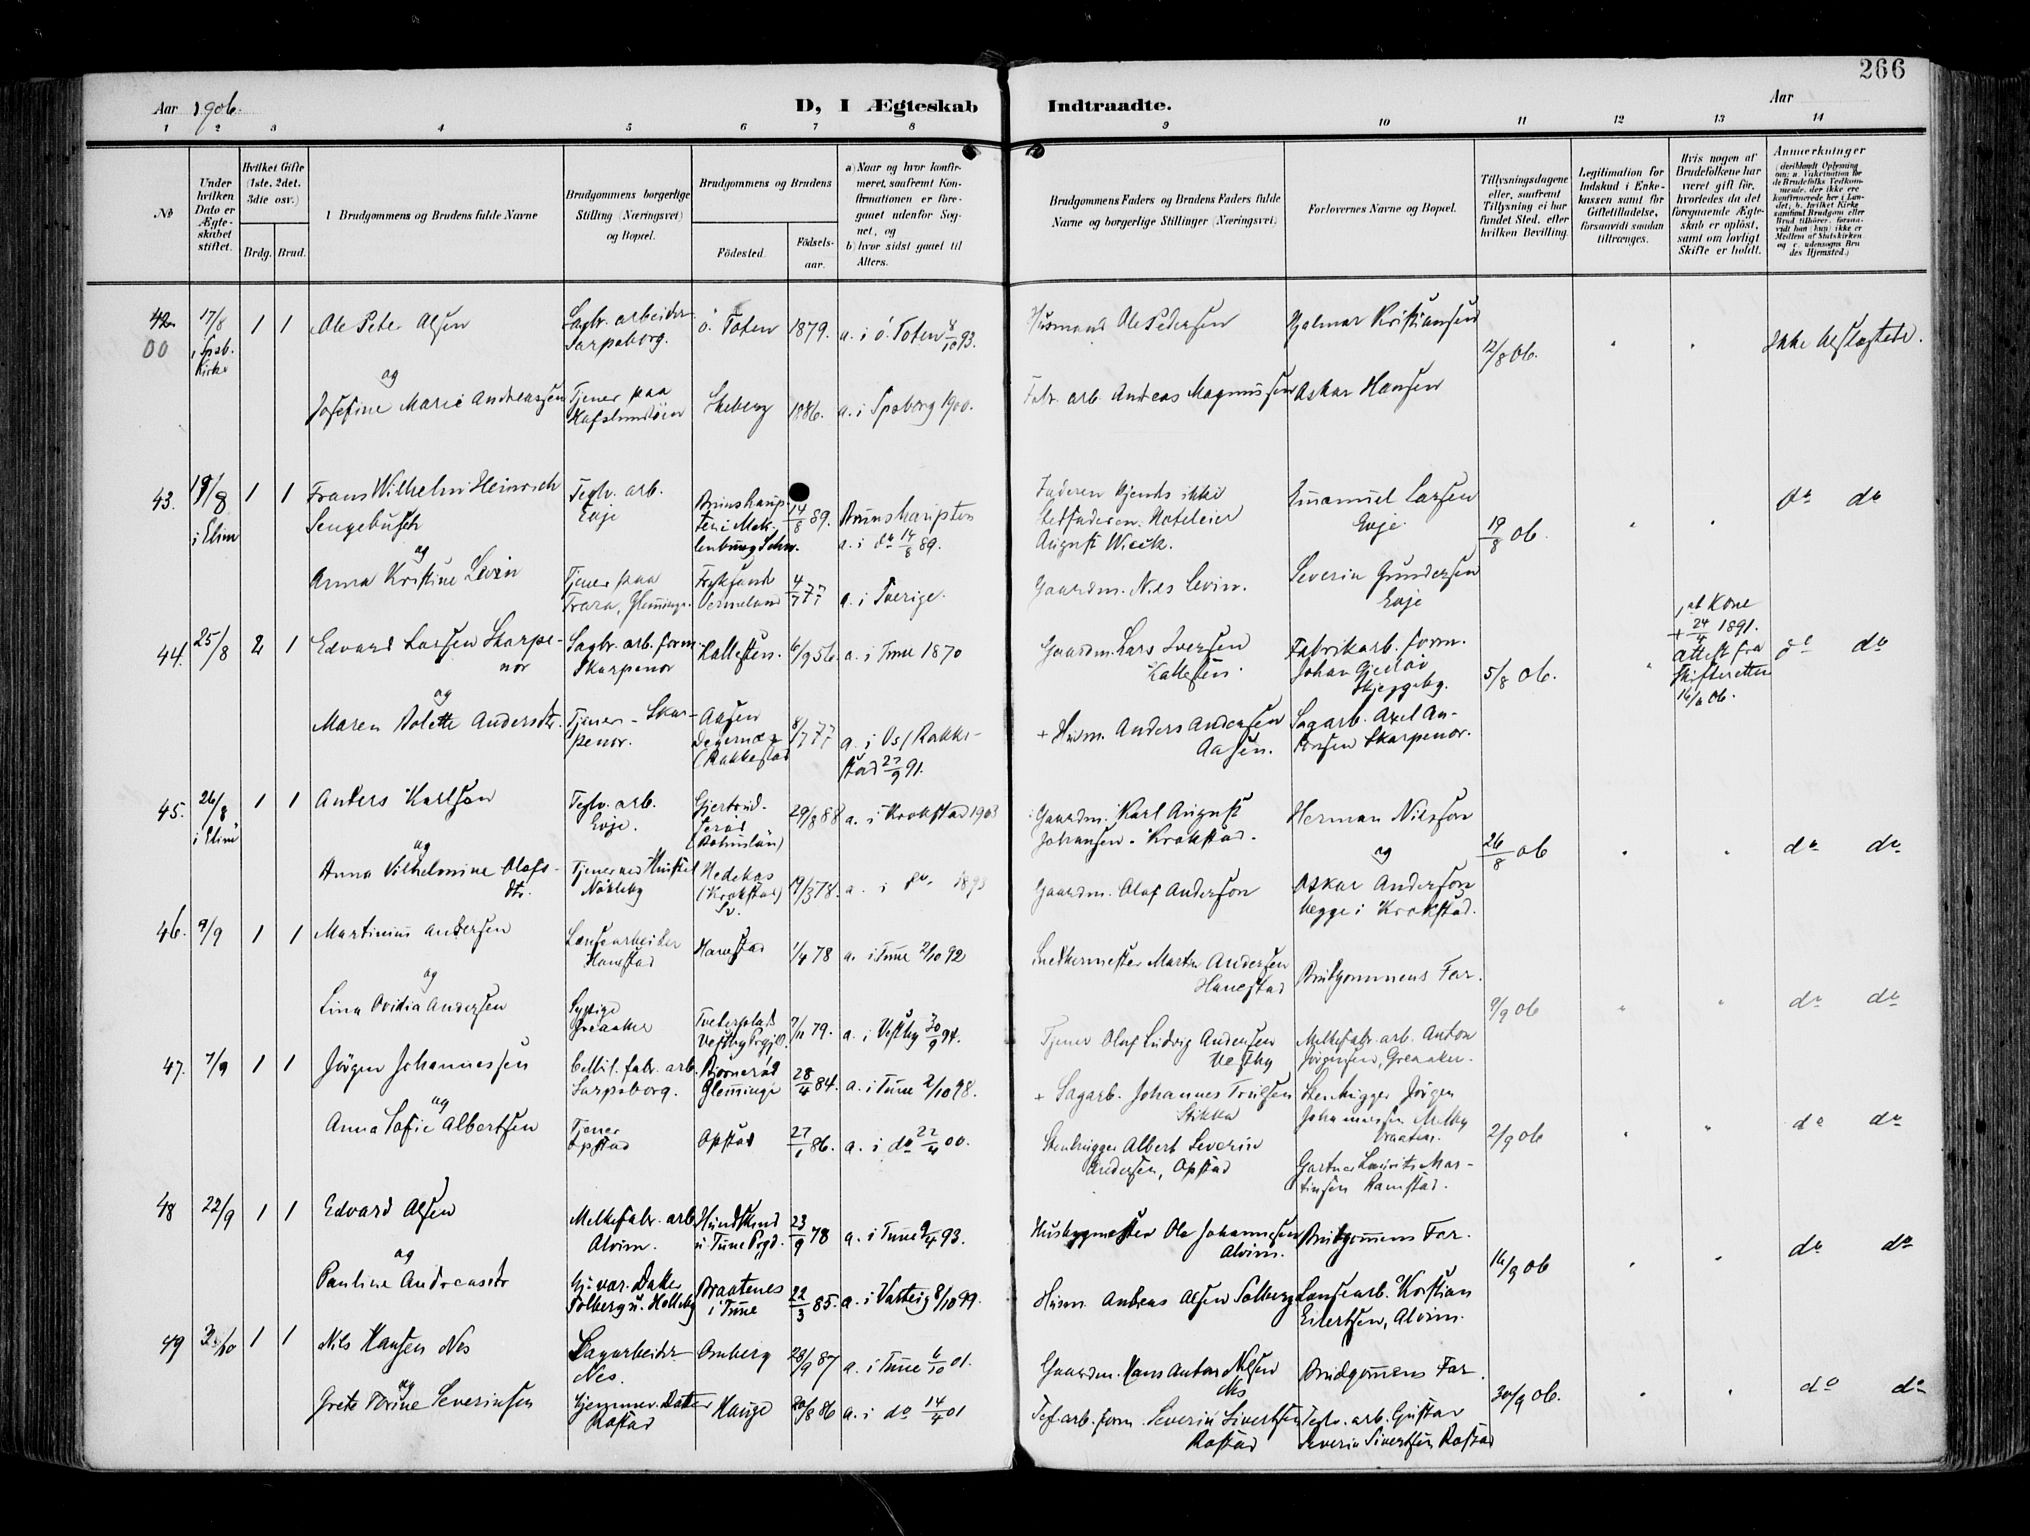 266
Aar 1906.
D, I Ægteskab Indtraadte.
Aar
1 2 3 4 5 6 7 8 9 10 11 12 13 14
No
Under hvilken Dato er Ægteskabet stiftet.
Hvilket Gifte (1ste, 2det, 3die osv.)
Brdg. Brud.
1 Brudgommens og Brudens fulde Navne
Brudgommens borgerlige Stilling (Næringsvei) og Bopæl.
Brudgommens og Brudens
Fødested.
Fødselsaar.
a) Naar og hvor konfirmeret, saafremt Konfirmationen er foregaaet udenfor Sognet, og
b) hvor sidst gaaet til Alters.
Brudgommens Faders og Brudens Faders fulde Navne og borgerlige Stillinger (Næringsvei)
Forlovernes Navne og Bopæl.
Tillysningsdagene eller, saafremt Tillysning ei har fundet Sted, efter hvilken Bevilling.
Legitimation for Indskud i Enkekassen samt for Giftetilladelse, forsaavidt saadan tiltrænges.
Hvis nogen af Brudefolkene har været gift før, hvorledes da det foregaaende Ægteskab er opløst, samt om lovligt Skifte er holdt.
Anmærkninger
42. 17/8 1 1 Ole Peter Olsen
Sagbr. arbeider Sarpsborg.
Ö. Toten 1879. a. i Ö. Toten 93.
Husmand Ole Pedersen
Hjalmar Kristiansen
12/8 06.
Ikke beslægtede.
og
Josefine Marie Andreassen
Tjener paa Hafslundsöen
Skeberg 1886. a. i Spsborg 1900.
Fabr. arb. Andreas Magnussen
Oskar Hansen
43. 19/8 i Elim 1 1 Frans Wilhelm Heinrich Sengebusch
Teglv. arb. Evje
14/8 89. Brunshaupten a. i do 14/8 89.
Faderen kjendes ikke Stedfaderen Hoteleier August Wieck.
Emanuel Larsen Evje.
19/8 06.
do do
og
Anna Kristine Levin
Tjener paa Trara, Glemminge.
Vermeland 4/7 77 a. i Sverige.
Gaardm. Nils Levin.
Severin Gundersen Evje
44. 25/8 2 1 Edvard Larsen Skarpenor
Sagbr. arb. form. Skarpenor
Kallesten. 6/9 56 a. i Tune 1870
Gaardm. Lars Iversen Kallesten.
Fabrikarb. form. Johan Gjellös Skjeggeby.
5/8 06.
Kone + 24/4 1891. Attest fra Skifteretten
do do
og
Maren Bolette Andersdtr.
Tjener - Skarpenor.
Aasen Degernæs (Rakkestad 8/7 77 a. i Os, Rakkestad 27/9 91.
+ Husm. Anders Andersen Aasen.
Sagarb. Axel Andersen Skarpenor.
45. 26/8 i Elim 1 1 Anders Karlson
Teglv. arb. Evje.
29/8 88 a. i Krokstad 1903
Gaardm. Karl August Johansen. Krokstad.
Herman Nilsson
26/8 06
do do
og
Anna Vilhelmine Olofsdtr.
Tjener Nökleby
Hedekas (Krokstad) Sv. 19/3 78. a. i do 1893
Gaardm. Olof Anderson
og
Oskar Anderson begge i Krokstad.
46. 9/9 1 1 Martinius Andersen
Lensearbeider Hanestad
Hanestad 1/4 78 a. i Tune 2/10 92
Snedkermester Martin Andersen Hanestad
Brudgommens Far.
9/9 06
do do
og
Lina Ovidia Andersen
Sypige Greaaker
Vestby 7/11 79. a. i Vestby 30/9 94.
Tjener Olaf Ludvig Andersen Vestby
Melkefabr. arb. Anton Jörgensen, Greaaker.
47. 7/9 1 1 Jörgen Johannessen
Cellul. fabr. arb. Sarpsborg.
Bjørneröd Glemminge 28/4 84. a. i Tune 2/10 98.
+ Sagarb. Johannes Trulsen Stikka
Stenhugger Jörgen Johannessen Melby
2/9 06
do do
og
Anna Sofie Albertsen
Tjener Opstad
Opstad 27/1 86. a. i do 22/4 00.
Stenhugger Albert Severin Andersen, Opstad
Gartner Lauritz Martinsen Ramstad.
48 22/9 1 1 Edvard Olsen
Melkefabr. arb. Alvim.
Hundskind u. Tune Prgd. 23/9 78 a. i Tune 9/4 93.
Husbygmester Ole Johannesen Alvim.
Brudgommens Far.
16/9 06
do do
og
Pauline Andreasdtr
Hjv. Datter Solberg u. Holleby
Braatenes i Tune 22/3 85. a. i Varteig 8/10 99.
Husm. Andreas Olsen Solberg
Lensearb. Kristian Eilertsen, Alvim.
49 1 1 Nils Hansen Nes
Sagarbeider Nes.
Omberg 28/9 87 a. i Tune 6/10 01.
Gaardm. Hans Anton Nilsen Nes
Brudgommens Far.
30/9 06.
do do
og
Grete Severinsen
Hjemmev. Datter Rostad
Hauge 20/8 86 a. i do 14/4 01
Tegl. arb. form. Severin Sivertsen Rostad
Teglv. arb. Gustav Severin Sivertsen Rostad